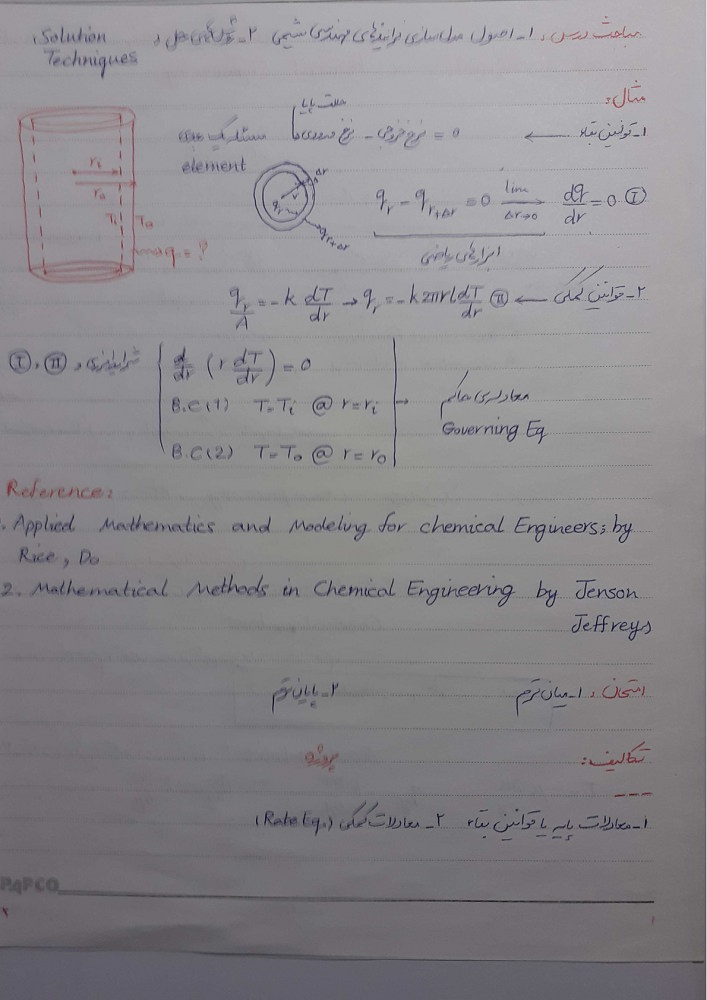 مباحث درس: ۱- اصول مدلسازی فرایندهای مهندسی شیمی ۲- تکنیک‌های حل، Solution
Techniques
مثال:
حالت پایا
۱- قوانین بقاء ← نرخ ورودی - نرخ خروجی = 0
element
Δr
r
q_r
q_{r+Δr}
q_r - q_{r+Δr} = 0 lim Δr→0 → dq/dr = 0 (I)
ابزارهای ریاضی
r_i
r_o
T_i T_o
q = ?
۲- قوانین کمکی ← (II) q_r/A = -k dT/dr → q_r = -k2πrl dT/dr
(I), (II) d/dr (r dT/dr) = 0
B.C(1) T=T_i @ r=r_i
B.C(2) T=T_o @ r=r_o
معادله‌ی حاکم
Governing Eq
Reference:
1. Applied Mathematics and Modeling for chemical Engineers; by
Rice, Do
2. Mathematical Methods in Chemical Engineering by Jenson
Jeffreys
امتحان: ۱- میان ترم ۲- پایان ترم
تکالیف:
پروژه
---
۱- معادلات پایه یا قوانین بقاء ۲- معادلات کمکی (Rate Eq.)
PAPCO
۲